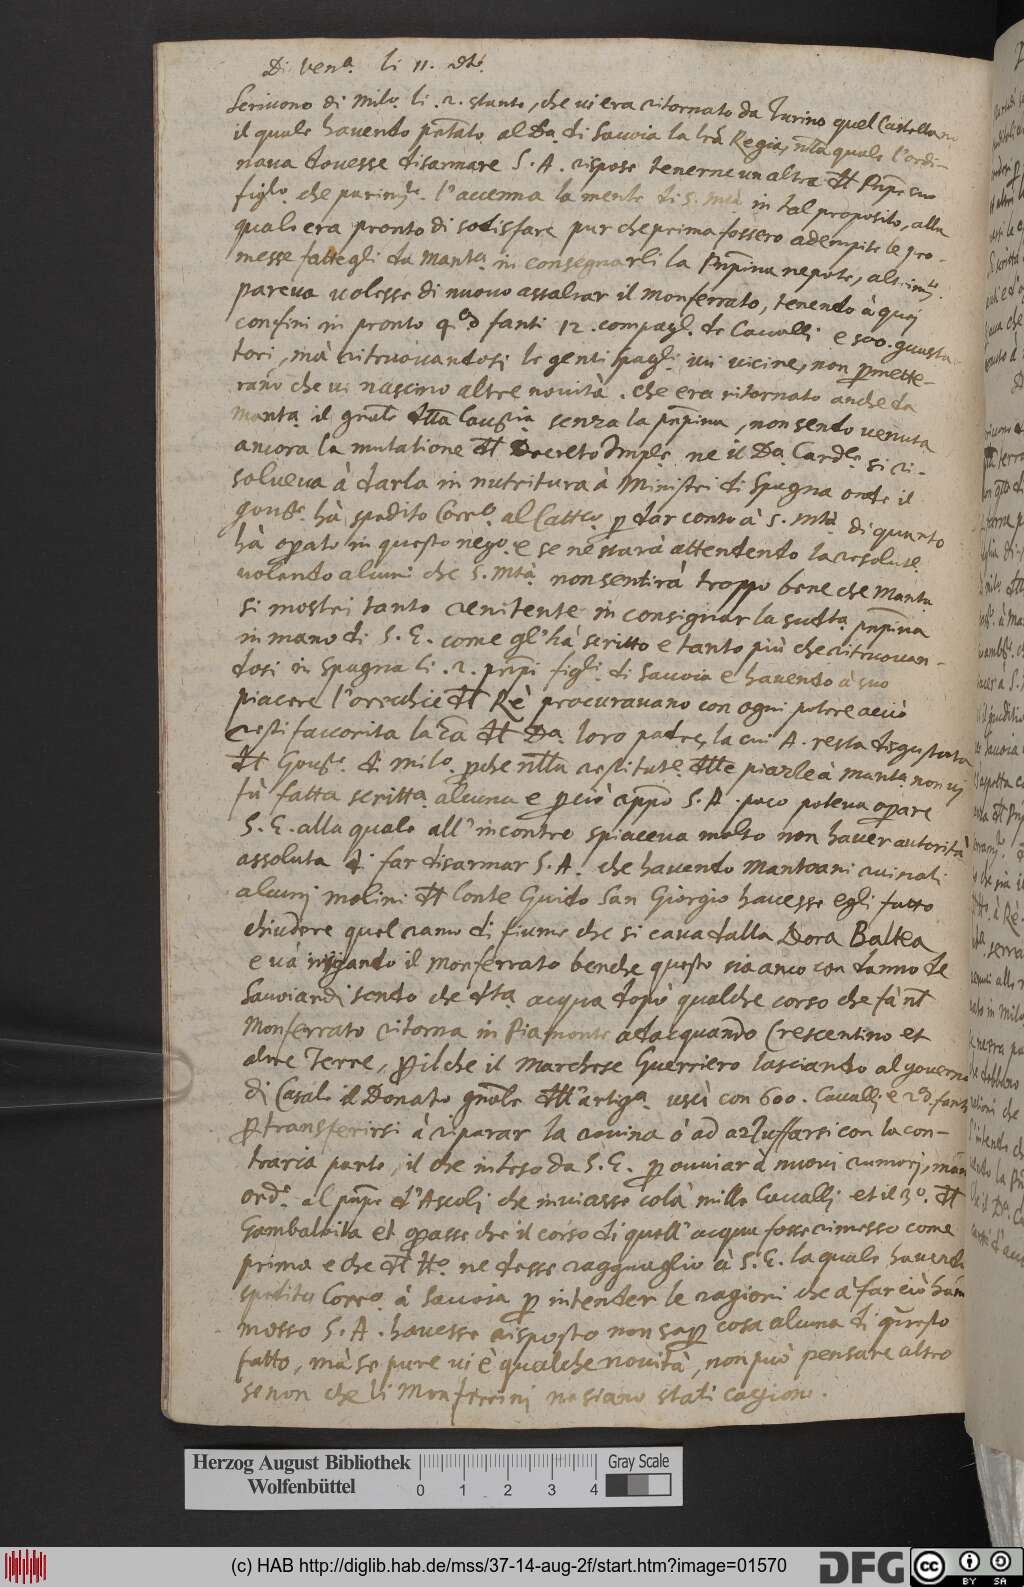 Di Ven.ª li 11. dto.
Scrivono di Mil.º li .2. stante, che vi era ritornato da Turino quel Castellano
il quale havendo pntato al Da. di Savoia la lrã Regia, nlla quale l'ordi-
nava dovesse disarmare S. A. rispose tenerne un altra dl Pnpe suo
figlo. che parimte. l'accenna la mente di S. Mtà in tal proposito, alla
quale era pronto di sodisfare pur che prima fossero adempite le pro-
messe fattegli da Manta. in consegnarli la Pnpina nepote, altrimte.
pareva volesse di nuovo assaltar il Monferrato, tenendo à quei
confini in pronto 4m fanti 12. compagl. de Cavalli e 500. guasta-
tori, mà ritruovandosi le genti spagli. ivi vicine, non pmette-
ranno che vi naschino altre novità. che era ritornato anche da
Manta. il gnale dlla Cavria. senza la pnpina, non sendo venuta
ancora la mutatione dl Decreto Imple. ne il Da. Cardle. si ri-
solveva à darla in nutritura à Ministri di Spagna onde il
Govre. hà spedito Corro. al Catto. p dar conto à S. Mtà di quanto
hà opato in questo nego. e se ne starà attendendo la resolute.
volendo alcuni che S. Mtà. non sentirà troppo bene che Manta.
si mostri tanto renitente in consignar la sudta. pnpina
in mano di S. E. come gl'hà scritto e tanto più che ritruovan-
dosi in Spagna li .2. pnpi figli. di Savoia e havendo à suo
piacere l'orecchie dl Rè procuravano con ogni potere acciò
resti favorita la ca dl Da. loro padre, la cui A. resta disgustata
dl Govre. di Milo. pche nlla restitute. dlle piazze à Manta. non vi
fù fatta scritta. alcuna e pciò appo S. A. poco poteva opare
S. E. alla quale all'incontro spiaceva molto non haver autorità
assoluta di far disarmar S. A. che havendo Mantoani ruinati
alcuni molini dl Conte Guido San Giorgio havesse egli fatto
chiudere quel ramo di fiume che si cava dalla Dora Baltea
e và irrigando il Monferrato benche questo sia anco con danno de
Savoiardi sendo che dta. acqua dopò qualche corso che fà nl
Monferrato ritorna in Piamonte adacquando Crescentino et
altre Terre, p ilche il Marchese Guerriero lasciando al governo
di Casale il Donato gnale dll'artiga. uscì con 600. Cavalli e 2m. fanti
p transferirsi à riparar la rovina ò ad azzuffarsi con la con-
traria parte, il che inteso da S. E. p ovviar à nuovi rumori, mandò
orde. al pnpe d'Ascoli che inviasse colà mille Cavalli et il 3º. dl
Gambaloita et opasse che il corso di quell'acqua fosse rimesso come
prima e che dl tto. ne desse ragguaglio à S. E. la quale havendo
spedito Corro. à Savoia p intender le ragioni che à far ciò hanno
mosso S. A. havesse risposto non sap cosa alcuna di questo
fatto, mà se pure vi è qualche novità, non può pensare altro
se non che li Monferrini ne siano stati cagione.
Herzog August Bibliothek
Wolfenbüttel
0 1 2 3 4
Gray Scale
(c) HAB http://diglib.hab.de/mss/37-14-aug-2f/start.htm?image=01570
DFG
cc BY SA